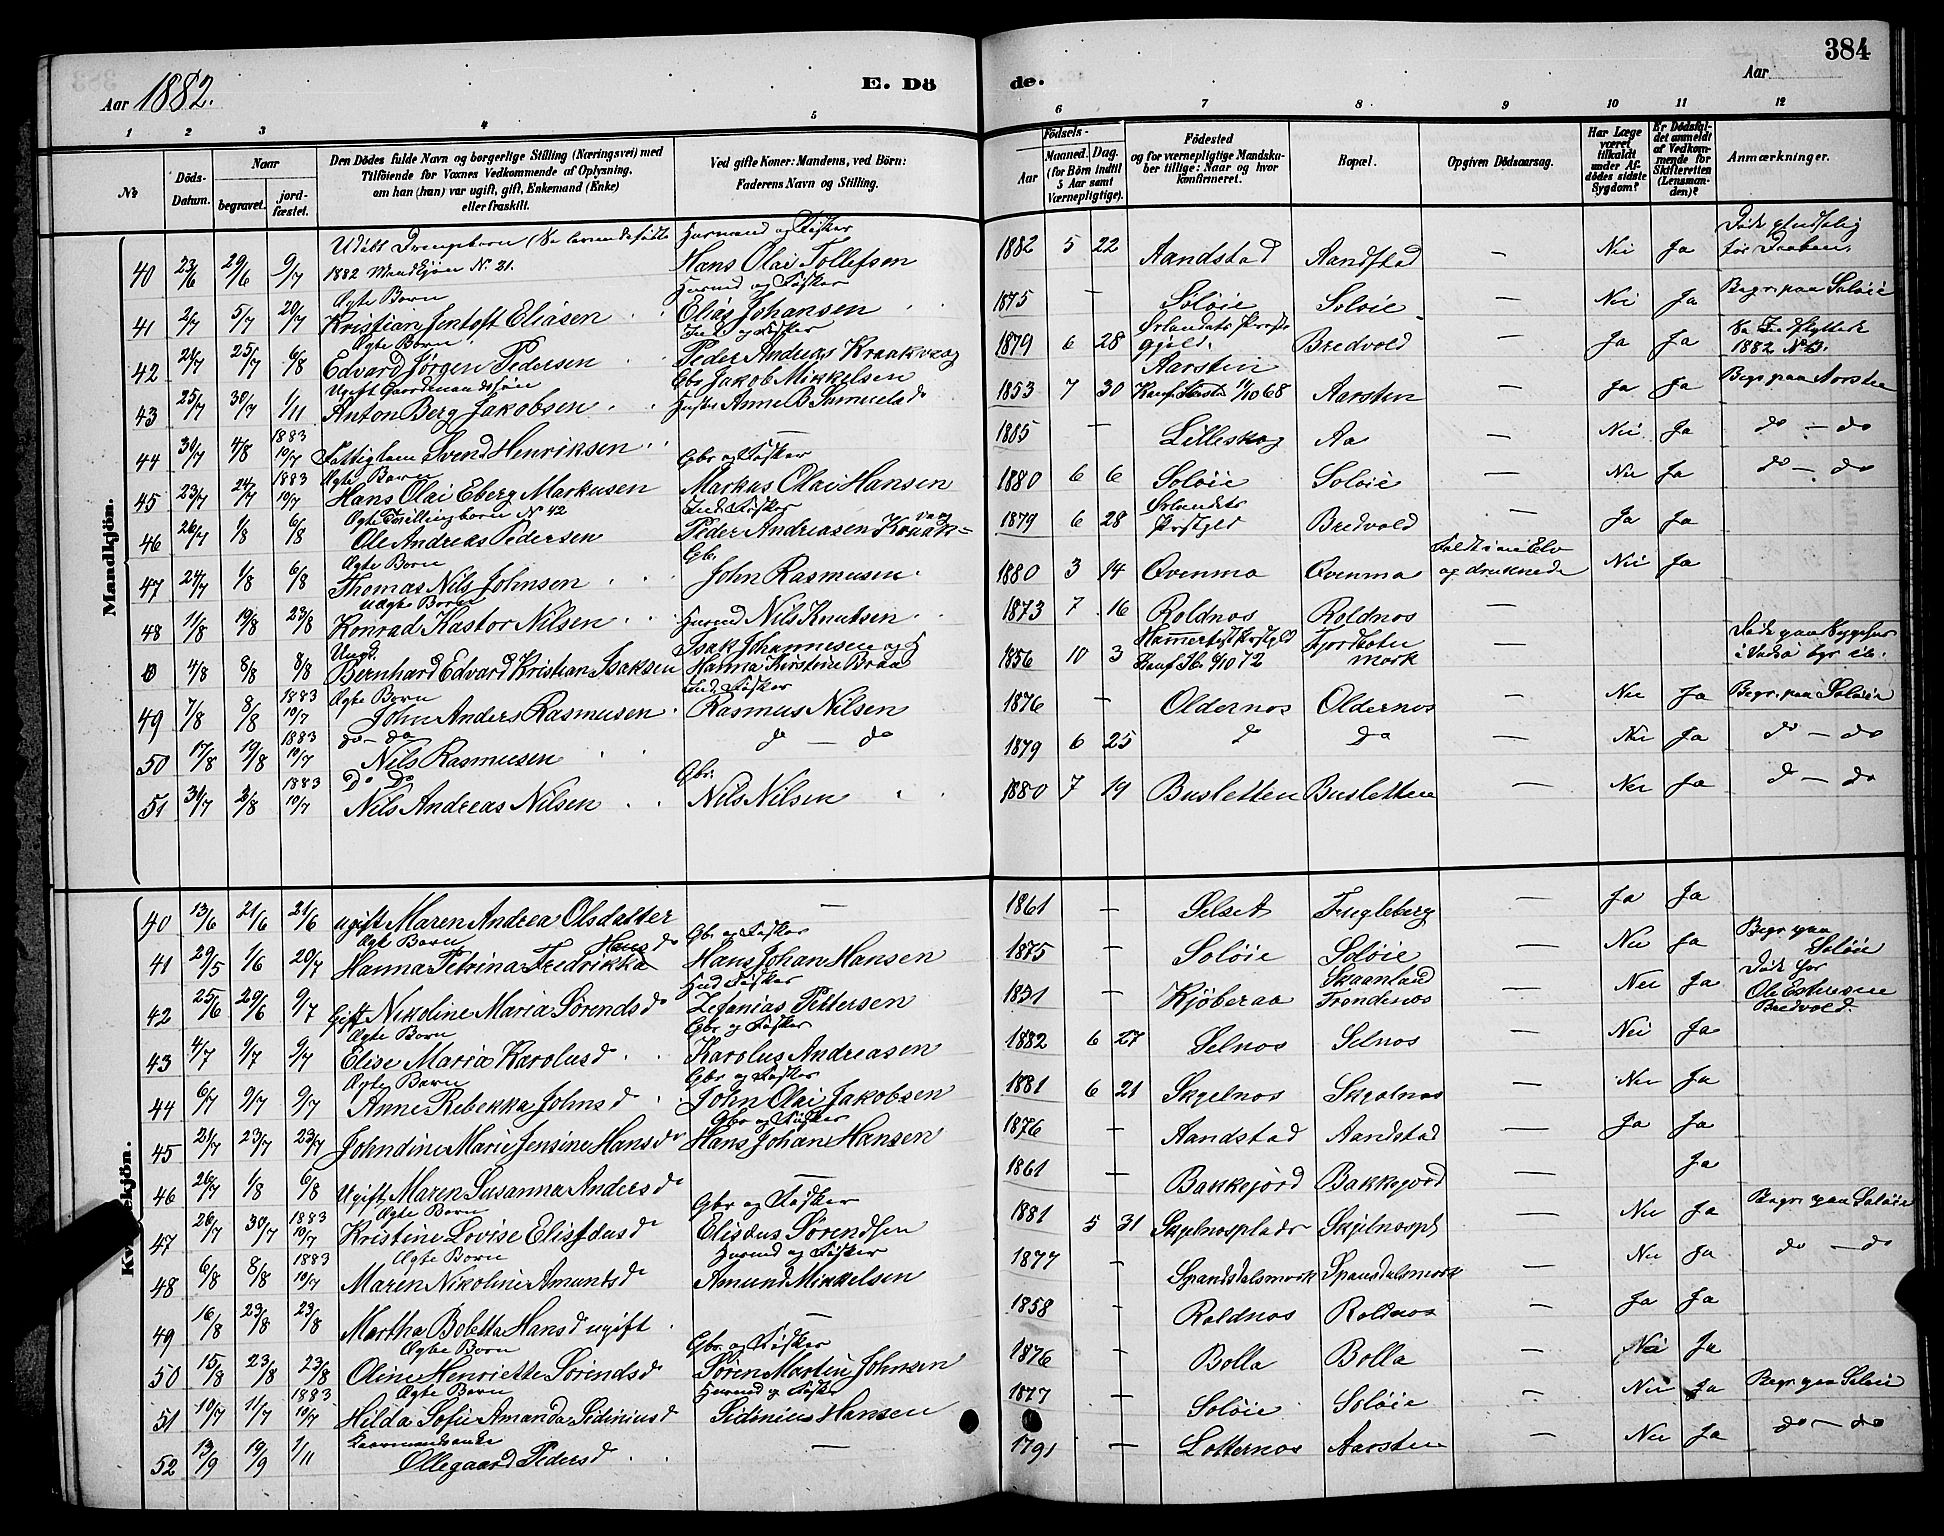 384
Aar 1882.
E. Dö de.
Aar
1 2 3 4 5 6 7 8 9 10 11 12
No
Döds-Datum.
Naar
begravet.
jord-fæstet.
Den Dödes fulde Navn og borgerlige Stilling (Næringsvei) med
Tilföiende for Voxnes Vedkommende af Oplysning,
om han (hun) var ugift, gift, Enkemand (Enke)
eller fraskilt.
Ved gifte Koner: Mandens, ved Börn:
Faderens Navn og Stilling.
Födsels-
Aar
Maaned. Dag.
(for Börn indtil 5 Aar samt Værnepligtige).
Födested
og for værnepligtige Mandska-
ber tillige: Naar og hvor
konfirmeret.
Bopæl.
Opgiven Dödsaarsag.
Har Læge været tilkaldt under Afdödes sidste Sygdom?
Er Dödsfaldet anmeldt af Vedkommende for Skifteretten (Lensmanden)?
Anmærkninger.
Mandkjön.
Udöbt Drengebarn
Husmand og Fisker
Døde
40 23/6 29/6 9/7 1882 Mandkjøn No. 21. Hans Olai Tollefsen 1882 5 22 Aandstad Aandstad — Nei Ja før Daaben.
Ægte Barn
41 2/7 5/7 20/7 Kristian Jentoft Eliasen Elias Johansen 1875 — Soløie Soløie — Nei Ja Begr. paa Soløie
Ægte Barn
42 21/7 25/7 6/8 Edvard Jørgen Pedersen Peder Andreas Kraakvaag 1879 6 28 Ørlandets Præstegjeld. Bredvold — Ja Ja 1882
Ugift Gaardmandssøn
Gbr Jakob Mikkelsen
Aarsten
43 25/7 30/7 1/11 Anton Berg Jakobsen Anne B Samuelsd 1853 7 30 11/10 68 Aarsten — Ja Ja Begr. paa Aarsten
44 30/7 4/8 1883 10/7 Fattiglem Svend Henriksen — 1805 — Lilleskog Aa — Nei Ja do — do
Ægte Barn
Gbr og Fisker
45 23/7 24/7 1883 10/7 Hans Olai Eberg Markusen Markus Olai Hansen 1880 6 6 Soløie Soløie — Nei Ja do — do
Ægte Tvillingbarn No 42
Ind. Fisker
46 26/7 1/8 6/8 Ole Andreas Pedersen Peder Andreasen Kraakvaag 1879 6 28 Ørlandets Bredvold — Ja Ja
Ægte Barn
Gbr.
47 24/7 1/8 6/8 Thomas Nils Johnsen John Rasmusen 1880 3 14 Øvenmo Øvenmo Faldt i en Elv og druknede Nei Ja
Uægte Barn
48 11/8 19/8 23/8 Konrad Kastor Nilsen Husmd Nils Knutsen 1873 7 16 Roldnos Roldnos —
Ungd.
Isak Johannesen og
0 4/8 8/8 8/8 Bernhard Edvard Kristian Isaksen Hanna Kirstine 1856 10 3 Fjordbotnmark — Døde paa Sygehus
Ægte Barn
Ind. Fisker
49 7/8 8/8 1883 10/7 John Anders Rasmusen Rasmus Nilsen 1876 — Oldernos Oldernos — Nei Ja Begr. paa Soløie
do — do
50 17/8 19/8 1883 10/7 Nils Rasmusen do — do 1879 6 25 do Do — Nei Ja do — do
Do Do
Gbr.
51 31/7 2/8 1883 10/7 Nils Andreas Nilsen Nils Nilsen 1880 7 19 Busletten Busletten — Nei Ja do — do
Kvindekjön.
40 13/6 21/6 21/6 Ugift Maren Andrea Olsdatter — 1861 — Selset Fugleberg — Ja Ja
Ægte Barn
Gbr og Fisker
41 29/5 1/6 20/7 Hanna Petrina Fredrikka Hansd Hans Johan Hansen 1875 — Soløie Soløie — Nei Ja Begr. paa Soløie
Husd Fisker
42 25/6 29/6 9/7 Gift Nikoline Maria Sørendsd Zefanias Pettersen 1831 — Kjøberaa Skaanland Trondenos — Nei Ja Døde hos Ole Bredvold.
Ægte Barn
Gbr og Fisker
43 4/7 9/7 9/7 Elise Maria Karolusd Karolus Andreasen 1882 6 27 Selnos Selnos — Nei Ja
Ægte Barn
Gbr og Fisker
44 6/7 9/7 9/7 Anne Rebekka Johnsd John Olai Jakobsen 1881 6 21 Skjelnos Skjelnos — Nei Ja
Gbr og Fisker
45 21/7 23/7 23/7 Johndine Marie Jensine Hansd Hans Johan Hansen 1876 — Aandstad Aandstad — Ja Ja
46 26/7 1/8 6/8 Ugift Maren Susanna Andersd — 1861 — Bakkejord Bakkejord — Ja
Ægte Barn
Gbr og Fisker
47 26/7 30/7 1883 10/7 Kristine Lovise Elisæusd Elisæus Sørendsen 1881 5 31 Skjelnosplads Skjelnospl — Nei Ja Begr. paa Soløie
Ægte Barn
Husmd og Fisker
48 6/8 8/8 1883 10/7 Maren Nikoline Amundsd Amund Mikkelsen 1877 — Spansdalsmark Spansdalsmark — Nei Ja do — do
49 16/8 23/8 23/8 Martha Boletta Hansd ugift — 1858 — Roldnos Roldnos — Ja Ja
Ægte Barn
Gbr og Fisker
50 15/8 23/8 23/8 Oline Henriette Sørendsd Søren Martin Johnsen 1876 — Bolla Bolla — Nei Ja
Ægte Barn
Husmd og Fisker
51 10/7 11/7 1883 10/7 Hilda Sofie Amanda Sidiniusd Sidinius Hansen 1877 — Soløie Soløie — Nei Ja Begr. paa Soløie
52 13/9 19/9 1/11 Øllegaard Pedersd — 1791 — Lotternos Aarsten — Nei Ja do — do